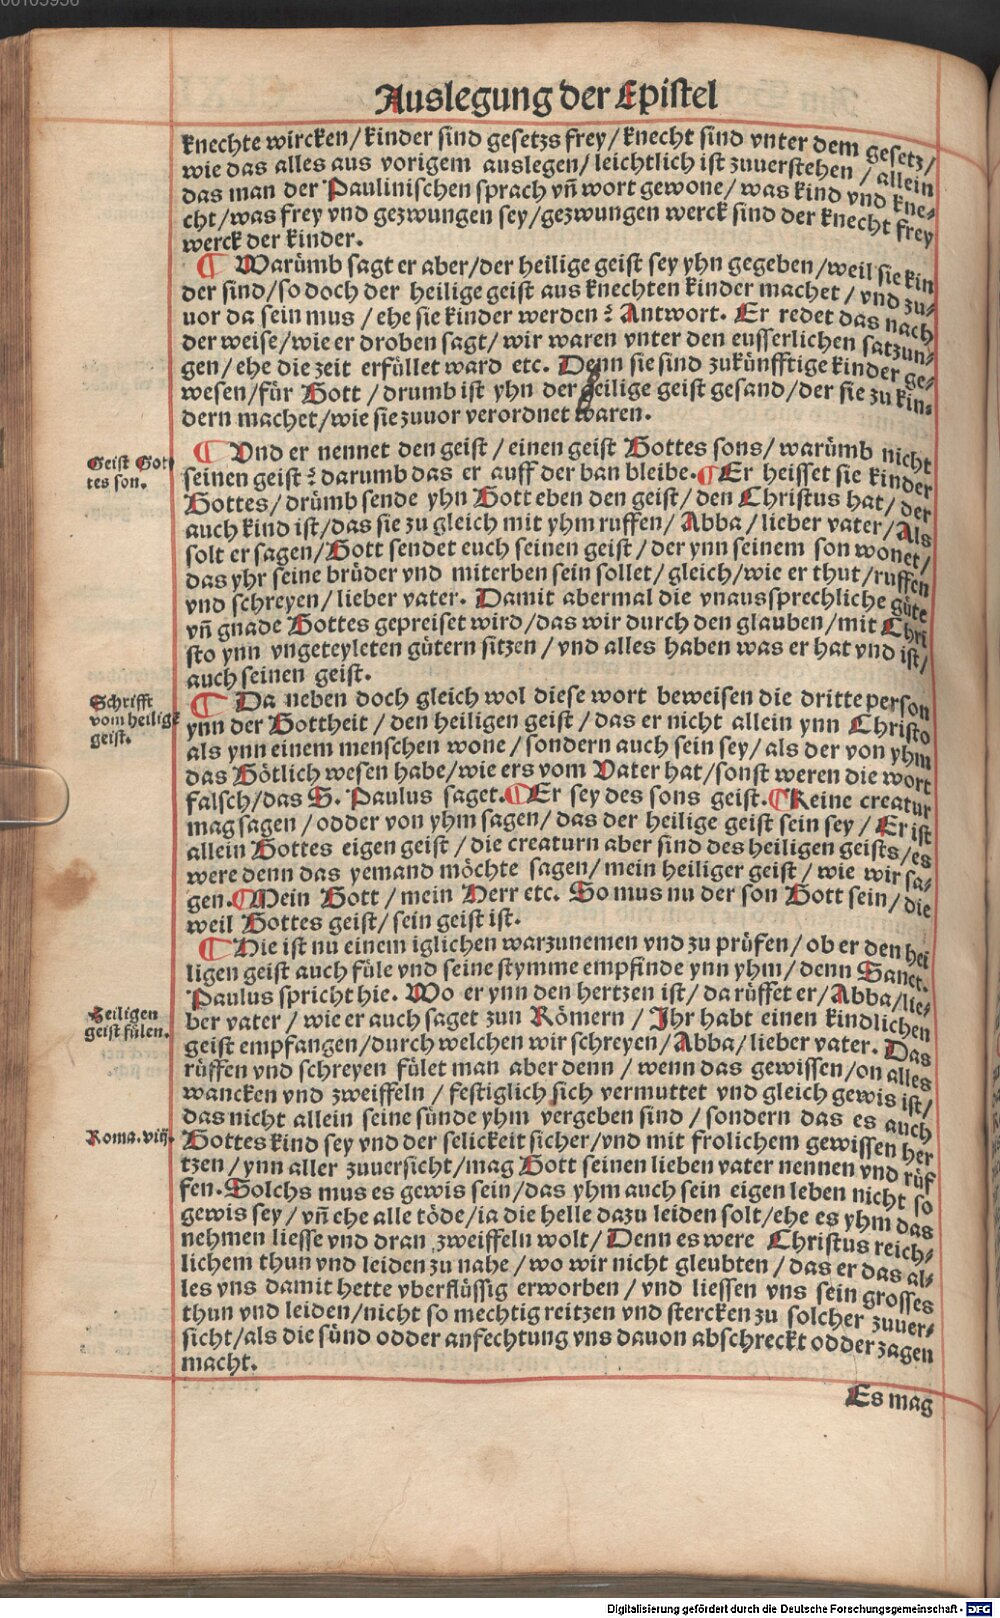 Auslegung der Epistel
knechte wircken/kinder sind gesetzs frey/knecht sind vnter dem gesetz/
wie das alles aus vorigem auslegen/leichtlich ist zuuerstehen/allein
das man der Paulinischen sprach vñ wort gewone/was kind vnd kne⸗
cht/was frey vnd gezwungen sey/gezwungen werck sind der knecht frey
werck der kinder.
¶ Warümb sagt er aber/der heilige geist sey yhn gegeben/weil sie kin
der sind/so doch der heilige geist aus knechten kinder machet/vnd zu⸗
uor da sein mus/ehe sie kinder werden? Antwort. Er redet das nach
der weise/wie er droben sagt/wir waren vnter den eusserlichen satzun⸗
gen/ehe die zeit erfüllet ward etc. Denn sie sind zukünfftige kinder ge⸗
wesen/für Gott/drumb ist yhn der heilige geist gesand/der sie zu kin⸗
dern machet/wie sie zuuor verordnet waren.
Geist Got
tes son.
¶ Vnd er nennet den geist/einen geist Gottes sons/warümb nicht
seinen geist? darumb das er auff der ban bleibe.¶Er heisset sie kinder
Gottes/drümb sende yhn Gott eben den geist/den Christus hat/der
auch kind ist/das sie zu gleich mit yhm ruffen/Abba/lieber vater/Als
solt er sagen/Gott sendet euch seinen geist/der ynn seinem son wonet/
das yhr seine brüder vnd miterben sein sollet/gleich/wie er thut/ruffen
vnd schreyen/lieber vater. Damit abermal die vnaussprechliche güte
vñ gnade Gottes gepreiset wird/das wir durch den glauben/mit Chri
sto ynn vngeteyleten gütern sitzen/vnd alles haben was er hat vnd ist/
auch seinen geist.
Schrifft
vom heilig
geist.
¶ Da neben doch gleich wol diese wort beweisen die dritte person
ynn der Gottheit/den heiligen geist/das er nicht allein ynn Christo
als ynn einem menschen wone/sondern auch sein sey/als der von yhm
das Götlich wesen habe/wie ers vom Vater hat/sonst weren die wort
falsch/das S. Paulus saget.¶Er sey des sons geist.¶Keine creatur
mag sagen/odder von yhm sagen/das der heilige geist sein sey/Er ist
allein Gottes eigen geist/die creaturn aber sind des heiligen geists/es
were denn das yemand möchte sagen/mein heiliger geist/wie wir sa⸗
gen.¶Mein Gott/mein Herr etc. So mus nu der son Gott sein/die
weil Gottes geist/sein geist ist.
¶ Hie ist nu einem iglichen warzunemen vnd zu prüfen/ob er den hei
ligen geist auch füle vnd seine stymme empfinde ynn yhm/denn Sanct.
Paulus spricht hie. Wo er ynn den hertzen ist/da rüffet er/Abba/lie⸗
Heiligen
geist fülen.
ber vater/wie er auch saget zun Römern/Ihr habt einen kindlichen
geist empfangen/durch welchen wir schreyen/Abba/lieber vater. Das
rüffen vnd schreyen fület man aber denn/wenn das gewissen/on alles
wancken vnd zweiffeln/festiglich sich vermuttet vnd gleich gewis ist/
das nicht allein seine sünde yhm vergeben sind/sondern das es auch
Roma. viij.
Gottes kind sey vnd der selickeit sicher/vnd mit frolichem gewissen her
tzen/ynn aller zuuersicht/mag Gott seinen lieben vater nennen vnd rüf
fen. Solchs mus es gewis sein/das yhm auch sein eigen leben nicht so
gewis sey/vñ ehe alle töde/ia die helle dazu leiden solt/ehe es yhm das
nehmen liesse vnd dran zweiffeln wolt/Denn es were Christus reich⸗
lichem thun vnd leiden zu nahe/wo wir nicht gleubten/das er das al⸗
les vns damit hette vberflüssig erworben/vnd liessen vns sein grosses
thun vnd leiden/nicht so mechtig reitzen vnd stercken zu solcher zuuer⸗
sicht/als die sünd odder anfechtung vns dauon abschreckt odder zagen
macht.
Es mag
Digitalisierung gefördert durch die Deutsche Forschungsgemeinschaft - DFG